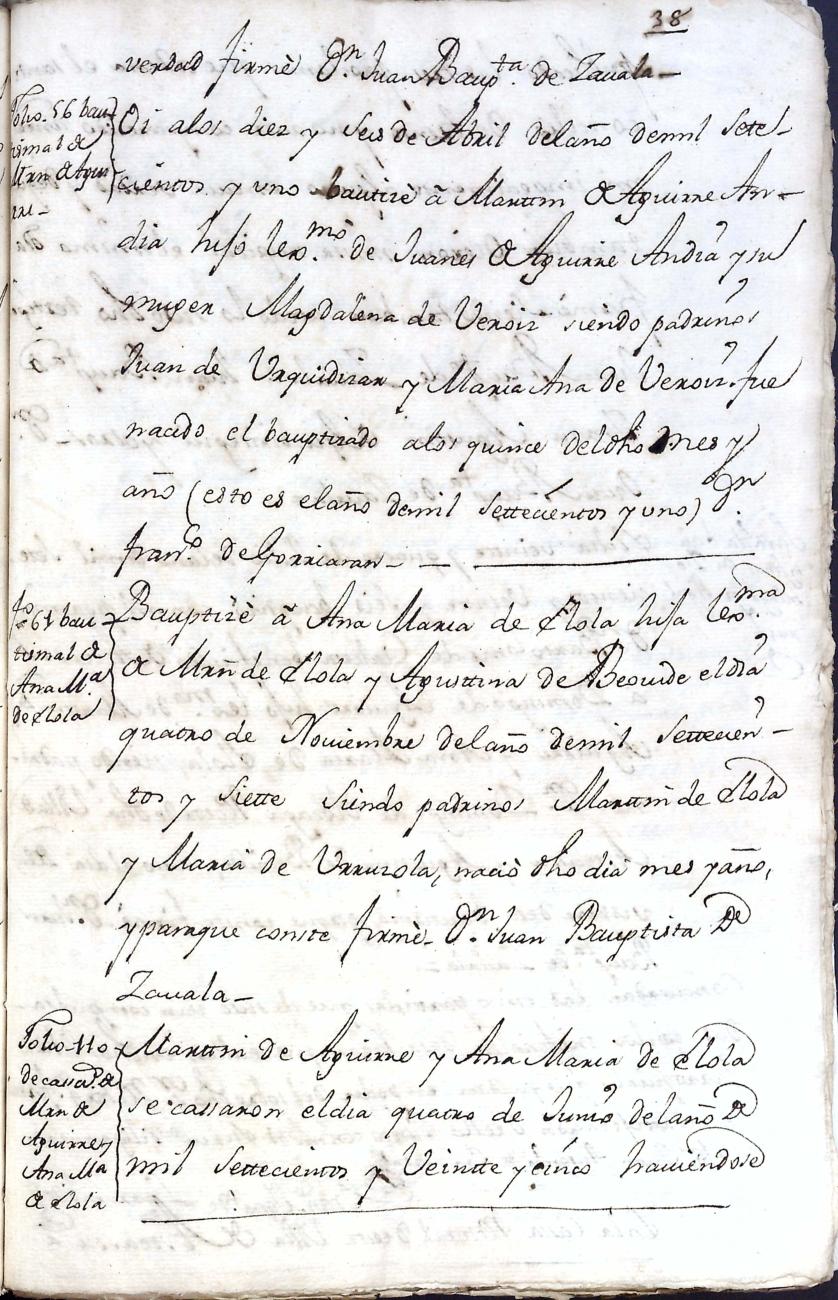 38
verdad firmè Dn. Juan Baupta. de Zauala-
Folio. 56 bau
tismal de
Mrn de Aguir
rre-
Oi alos diez y Seis de Abril delaño demil Sete-
cientos y uno bautizè â Marttin de Aguirre An-
dia hijo lexmo. de Juanes de Aguirre Andia y su
muger Magdalena de Veroiz siendo padrinos
Juan de Urquidizar y Maria Ana de Veroiz. fue
nacido el bauptizado alos quince deldho mes y
año (esto es elaño demil Settecientos y uno) Dn.
Franco. de Gorriaran- -
fo. 61 bau
tismal de
Ana Ma.
de Elola
Bauptizè â Ana Maria de Elola hija lexma.
de Mrn de Elola y Agusttina de Beouide eldia
quatro de Nouiembre delaño demil Settecien-
tos y Siette Siendo padrinos Marttin de Elola
y Maria de Urruzola, naciò dho dia mes y año,
y paraque conste firmè- Dn. Juan Bauptista de
Zauala-
Folio-110
de cassads. de
Mrn de
Aguirre y
Ana Ma
de Elola
Marttin de Aguirre y Ana Maria de Elola
se cassaron eldia quatro de Junio delaño de
mil Settecientos y Veintte y cinco hauiendose